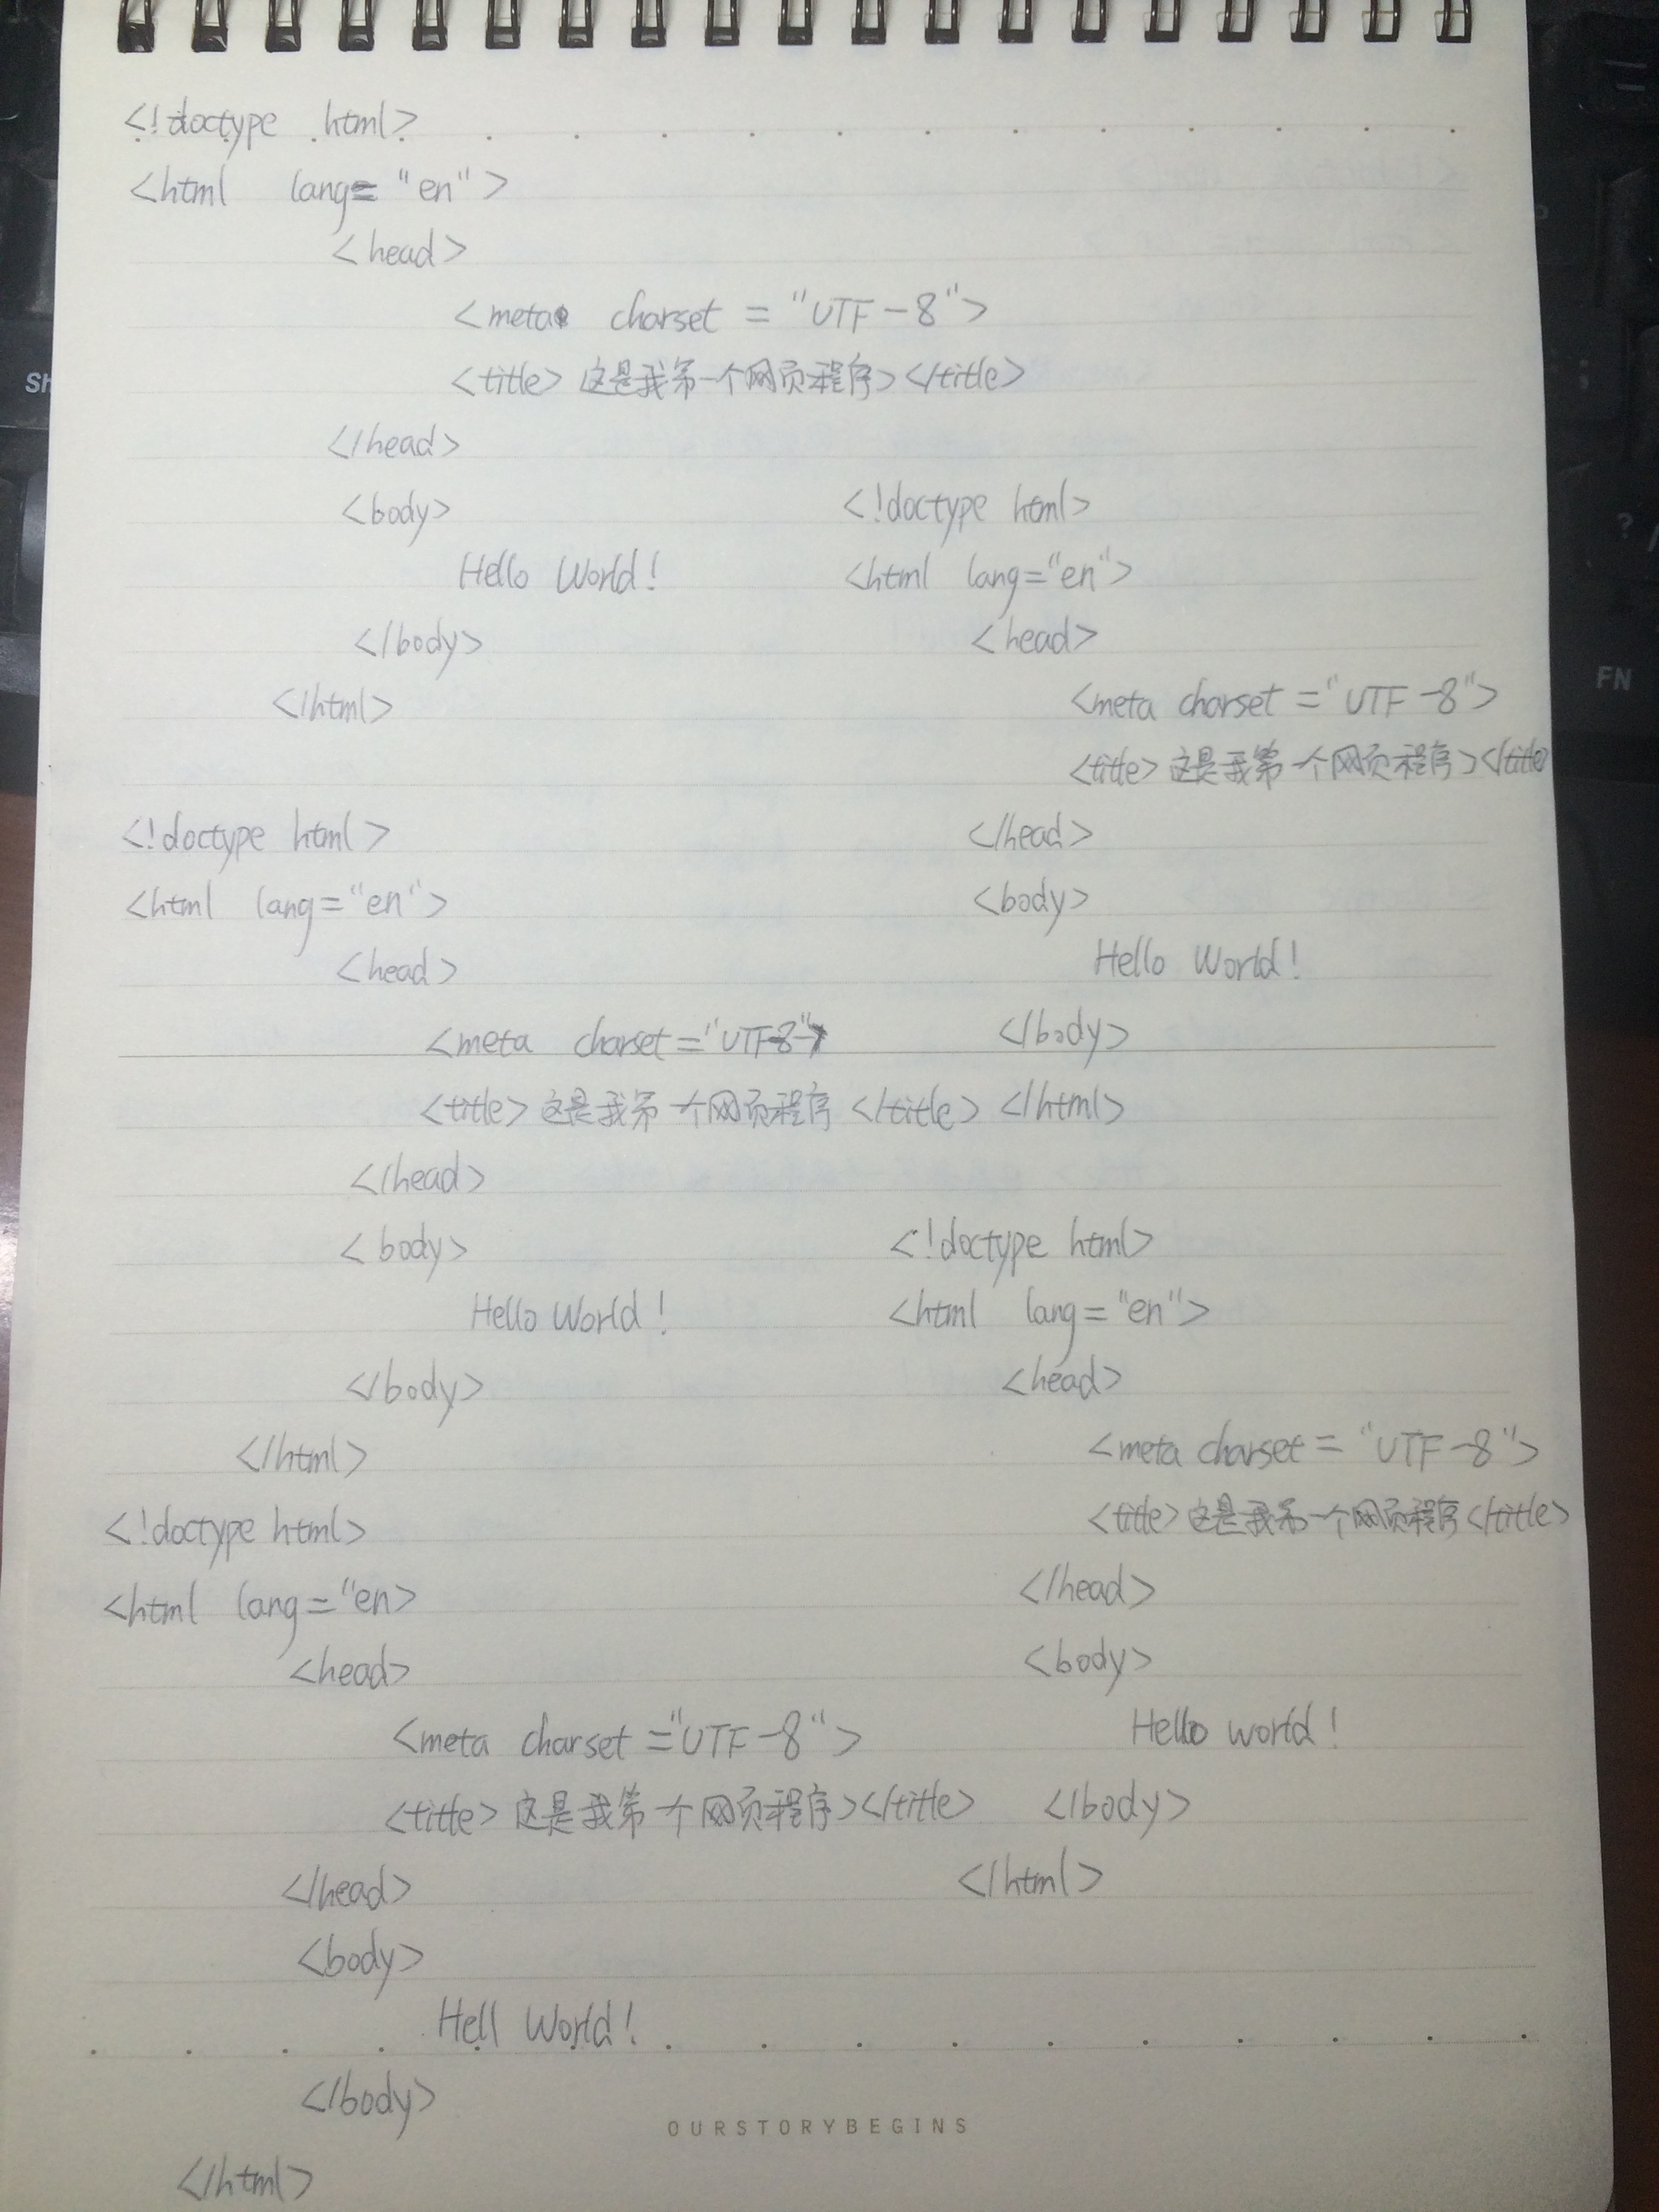 <!doctype html>
<html lang="en">
<head>
<meta charset="UTF-8">
<title>这是我第一个网页程序></title>
</head>
<body>
Hello World!
</body>
</html>
<!doctype html>
<html lang="en">
<head>
<meta charset="UTF-8">
<title>这是我第一个网页程序</title>
</head>
<body>
Hello World!
</body>
</html>
<!doctype html>
<html lang="en>
<head>
<meta charset="UTF-8">
<title>这是我第一个网页程序></title>
</head>
<body>
Hell World!
</body>
</html>
<!doctype html>
<html lang="en">
<head>
<meta charset="UTF-8">
<title>这是我第一个网页程序></title
</head>
<body>
Hello World!
</body>
</html>
<!doctype html>
<html lang="en">
<head>
<meta charset="UTF-8">
<title>这是我第一个网页程序</title>
</head>
<body>
Hello world!
</body>
</html>
OURSTORYBEGINS
FN